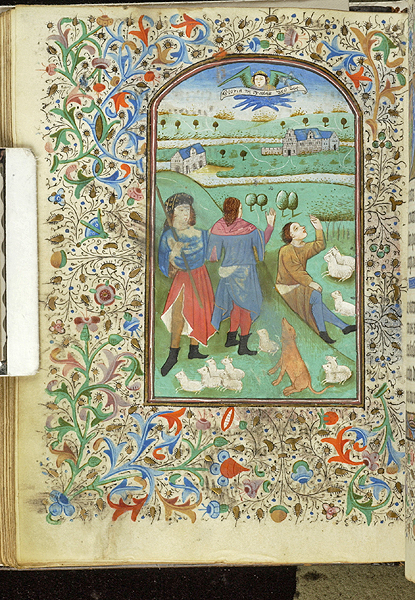 gloria in excelsis deo